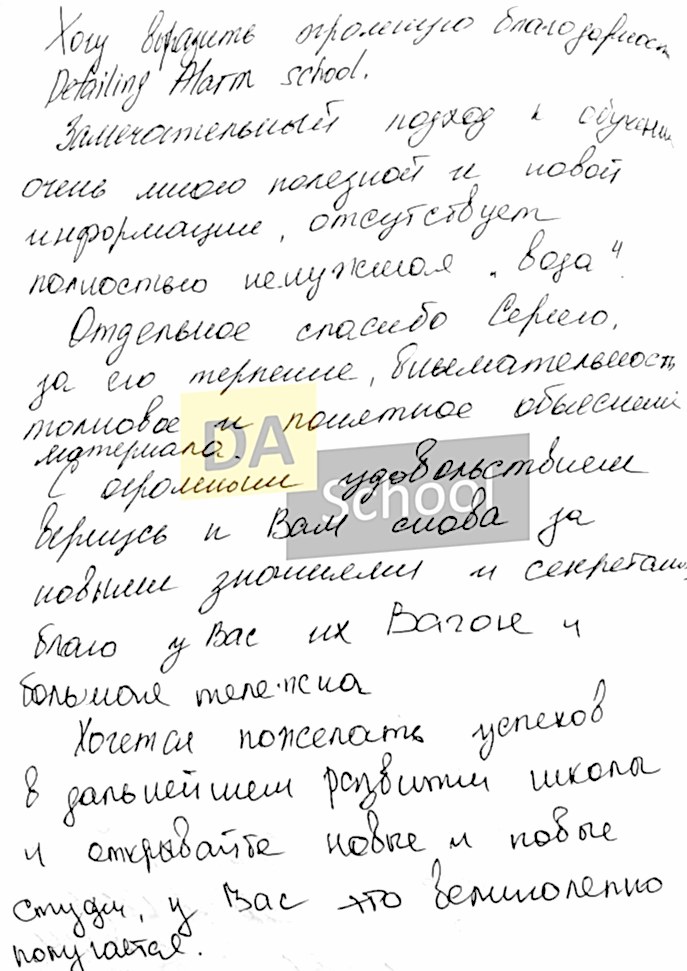 Хочу выразить огромную благодарность
Detailing Alarm school.
Замечательный подход к обучению
очень много полезной и новой
информации, отсутствует
полностью ненужная „вода“.
Отдельное спасибо Сергею,
за его терпение, внимательность
толковое и понятное объяснение
материала.
DA
С огромным удовольствием
School
вернусь к Вам снова за
новыми знаниями и секретами,
благо у Вас их Вагон и
большая тележка
Хочется пожелать успехов
в дальнейшем развитии школы
и открывайте новые и новые
студии, у Вас это великолепно
получается.